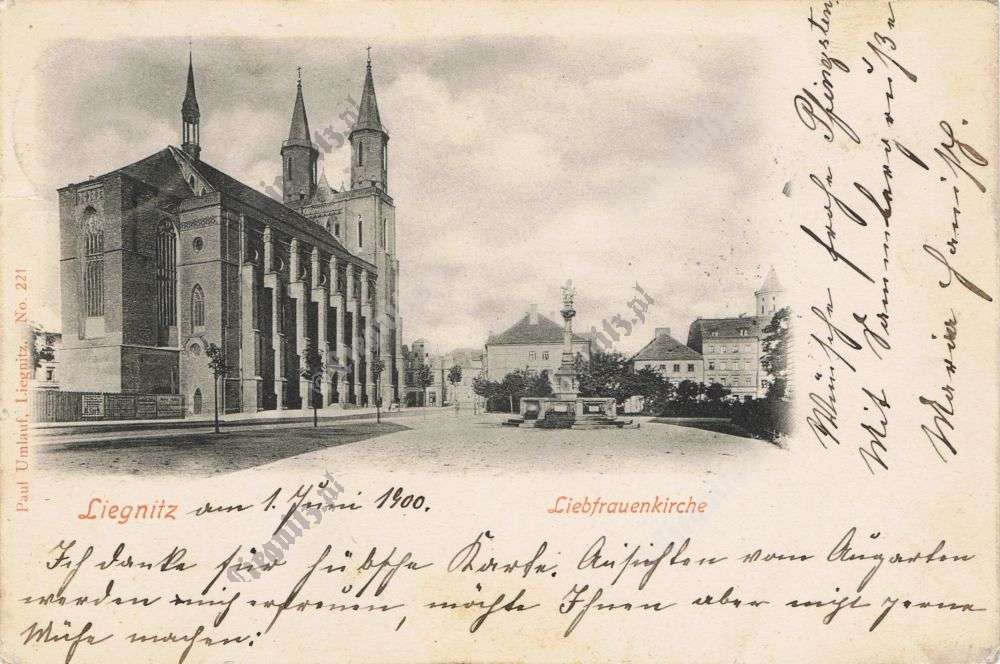 Liegnitz am 1. Juni 1900.
Liebfrauenkirche
Ich danke für hübsche Karte. Ansichten vom Augarten
werden mich erfreuen, möchte Ihnen aber nicht gerne
Mühe machen.
Wünsche frohe Pfingsten
Mit Sammlergruße
Marie Hanisch.
Paul Umlauf, Liegnitz, No. 221
liegnitz.pl